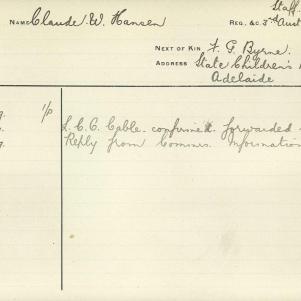 Staff.
NAME Claude. W. Hansen
REG. &C. 3rd Aust
NEXT OF KIN F. G. Byrne.
ADDRESS State Children's
Adelaide
1/p L. C. C. Cable. confirmed. forwarded
Reply from Commrs. Information